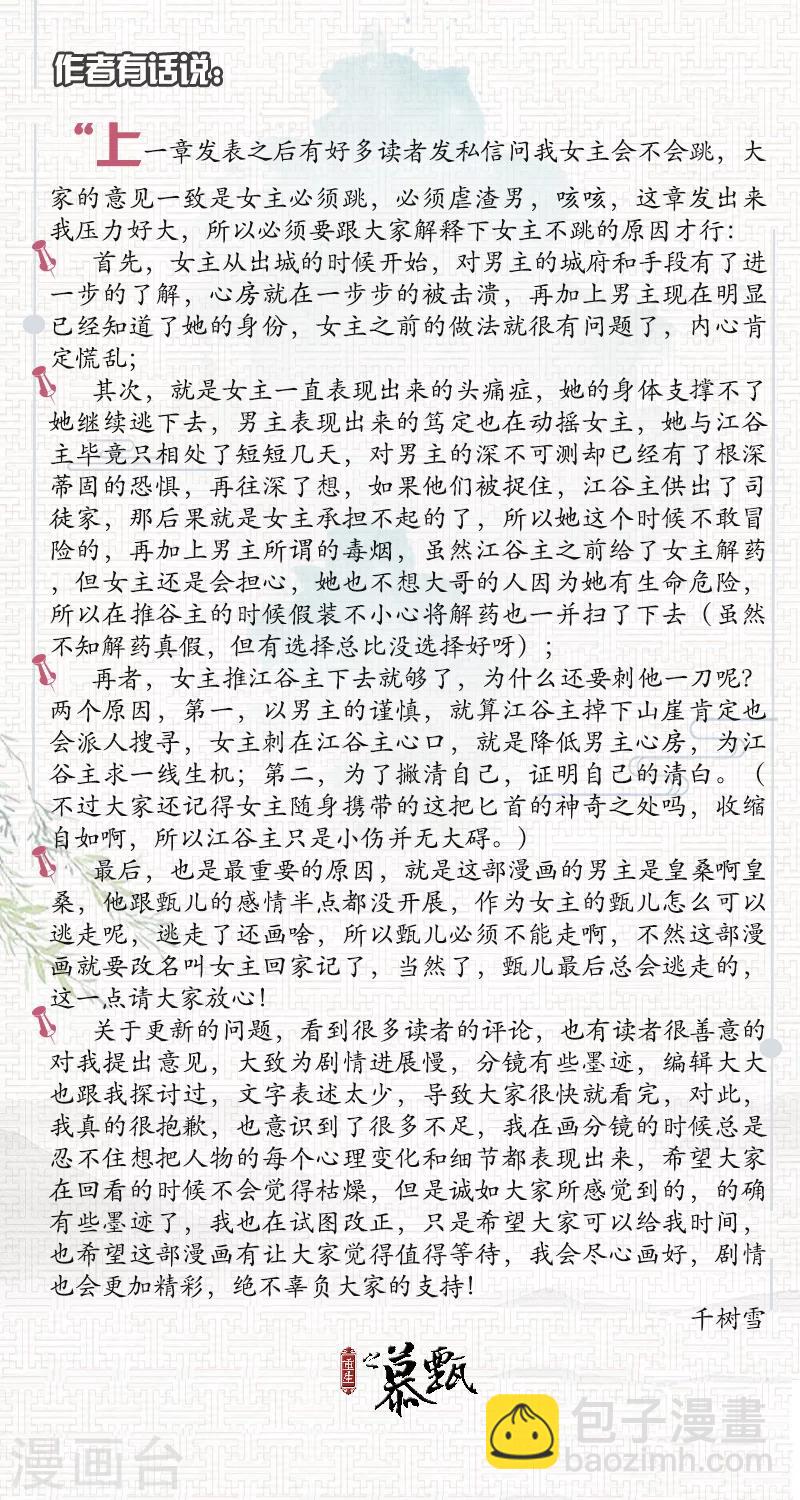 作者有话说：
“上一章发表之后有好多读者发私信问我女主会不会跳，大
家的意见一致是女主必须跳，必须虐渣男，咳咳，这章发出来
我压力好大，所以必须要跟大家解释下女主不跳的原因才行：
首先，女主从出城的时候开始，对男主的城府和手段有了进
一步的了解，心房就在一步步的被击溃，再加上男主现在明显
已经知道了她的身份，女主之前的做法就很有问题了，内心肯
定慌乱；
其次，就是女主一直表现出来的头痛症，她的身体支撑不了
她继续逃下去，男主表现出来的笃定也在动摇女主，她与江谷
主毕竟只相处了短短几天，对男主的深不可测却已经有了根深
蒂固的恐惧，再往深了想，如果他们被捉住，江谷主供出了司
徒家，那后果就是女主承担不起的了，所以她这个时候不敢冒
险的，再加上男主所谓的毒烟，虽然江谷主之前给了女主解药
，但女主还是会担心，她也不想大哥的人因为她有生命危险，
所以在推谷主的时候假装不小心将解药也一并扫了下去（虽然
不知解药真假，但有选择总比没选择好呀）；
再者，女主推江谷主下去就够了，为什么还要刺他一刀呢？
两个原因，第一，以男主的谨慎，就算江谷主掉下山崖肯定也
会派人搜寻，女主刺在江谷主心口，就是降低男主心房，为江
谷主求一线生机；第二，为了撇清自己，证明自己的清白。（
不过大家还记得女主随身携带的这把匕首的神奇之处吗，收缩
自如啊，所以江谷主只是小伤并无大碍。）
最后，也是最重要的原因，就是这部漫画的男主是皇桑啊皇
桑，他跟甄儿的感情半点都没开展，作为女主的甄儿怎么可以
逃走呢，逃走了还画啥，所以甄儿必须不能走啊，不然这部漫
画就要改名叫女主回家记了，当然了，甄儿最后总会逃走的，
这一点请大家放心！
关于更新的问题，看到很多读者的评论，也有读者很善意的
对我提出意见，大致为剧情进展慢，分镜有些墨迹，编辑大大
也跟我探讨过，文字表述太少，导致大家很快就看完，对此，
我真的很抱歉，也意识到了很多不足，我在画分镜的时候总是
忍不住想把人物的每个心理变化和细节都表现出来，希望大家
在回看的时候不会觉得枯燥，但是诚如大家所感觉到的，的确
有些墨迹了，我也在试图改正，只是希望大家可以给我时间，
也希望这部漫画有让大家觉得值得等待，我会尽心画好，剧情
也会更加精彩，绝不辜负大家的支持！
千树雪
重生之慕甄
包子漫畫
baozimh.com
漫画台